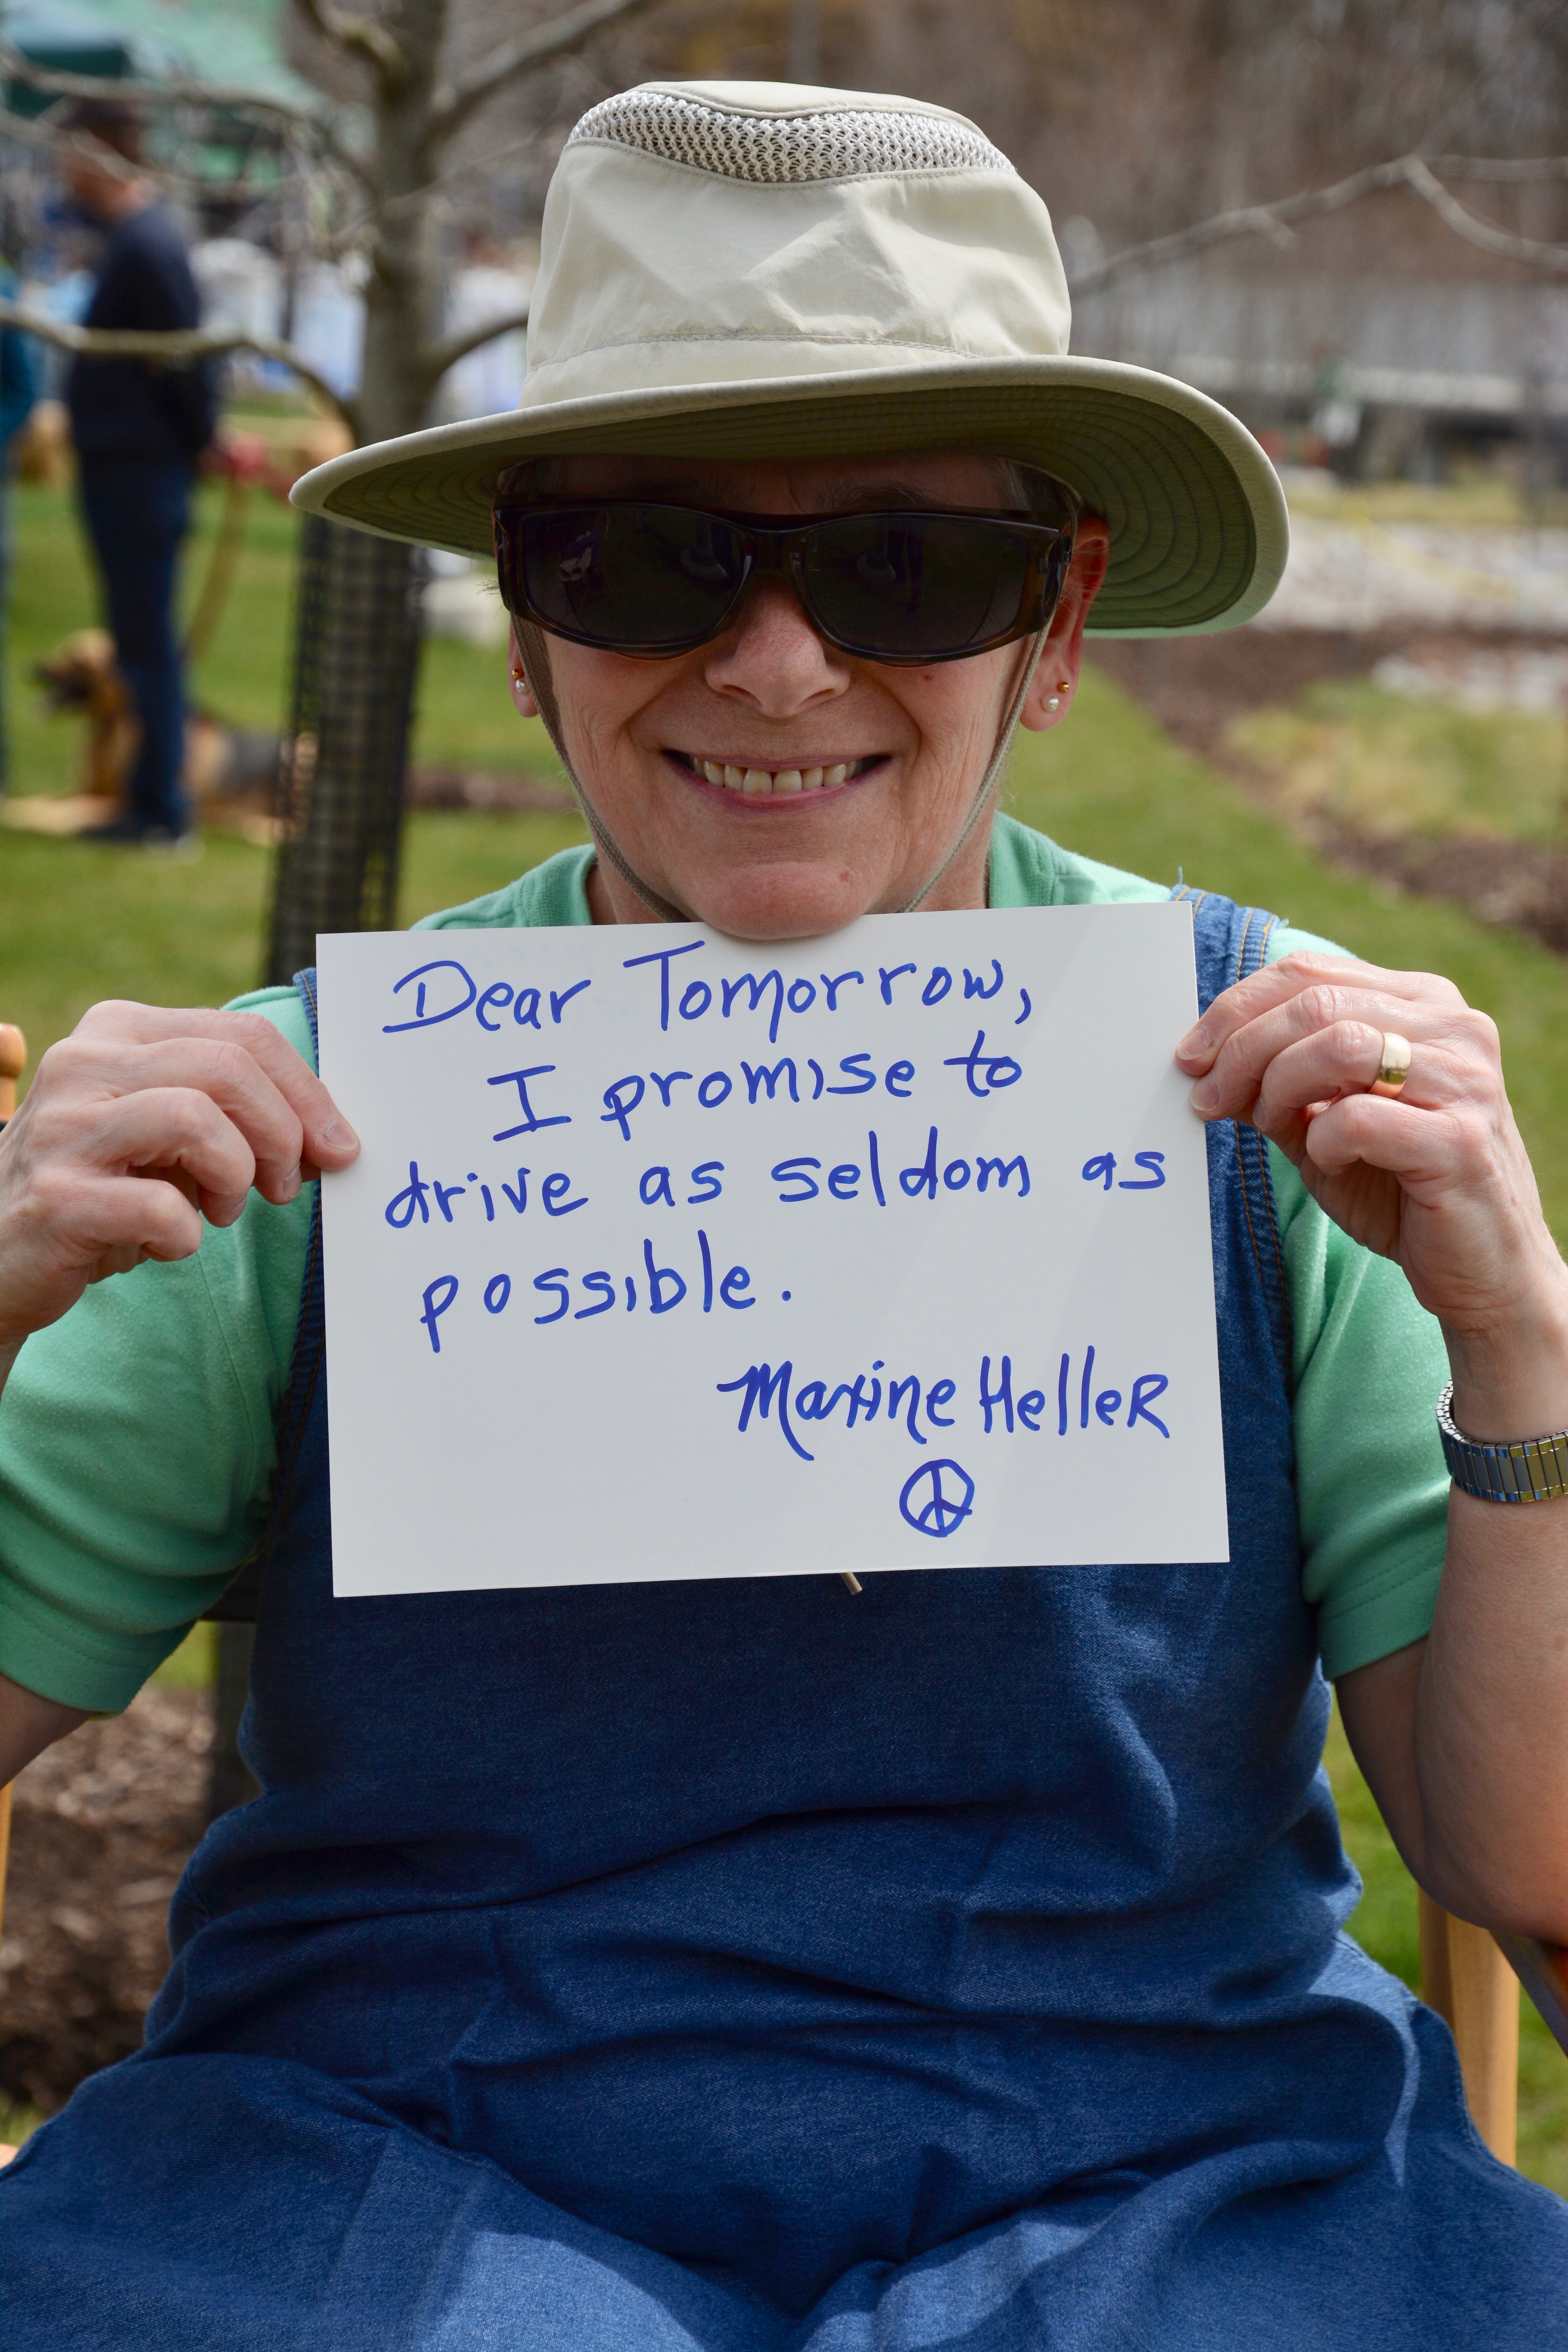 Dear Tomorrow,
I promise to
drive as seldom as
possible.
Maxine Heller